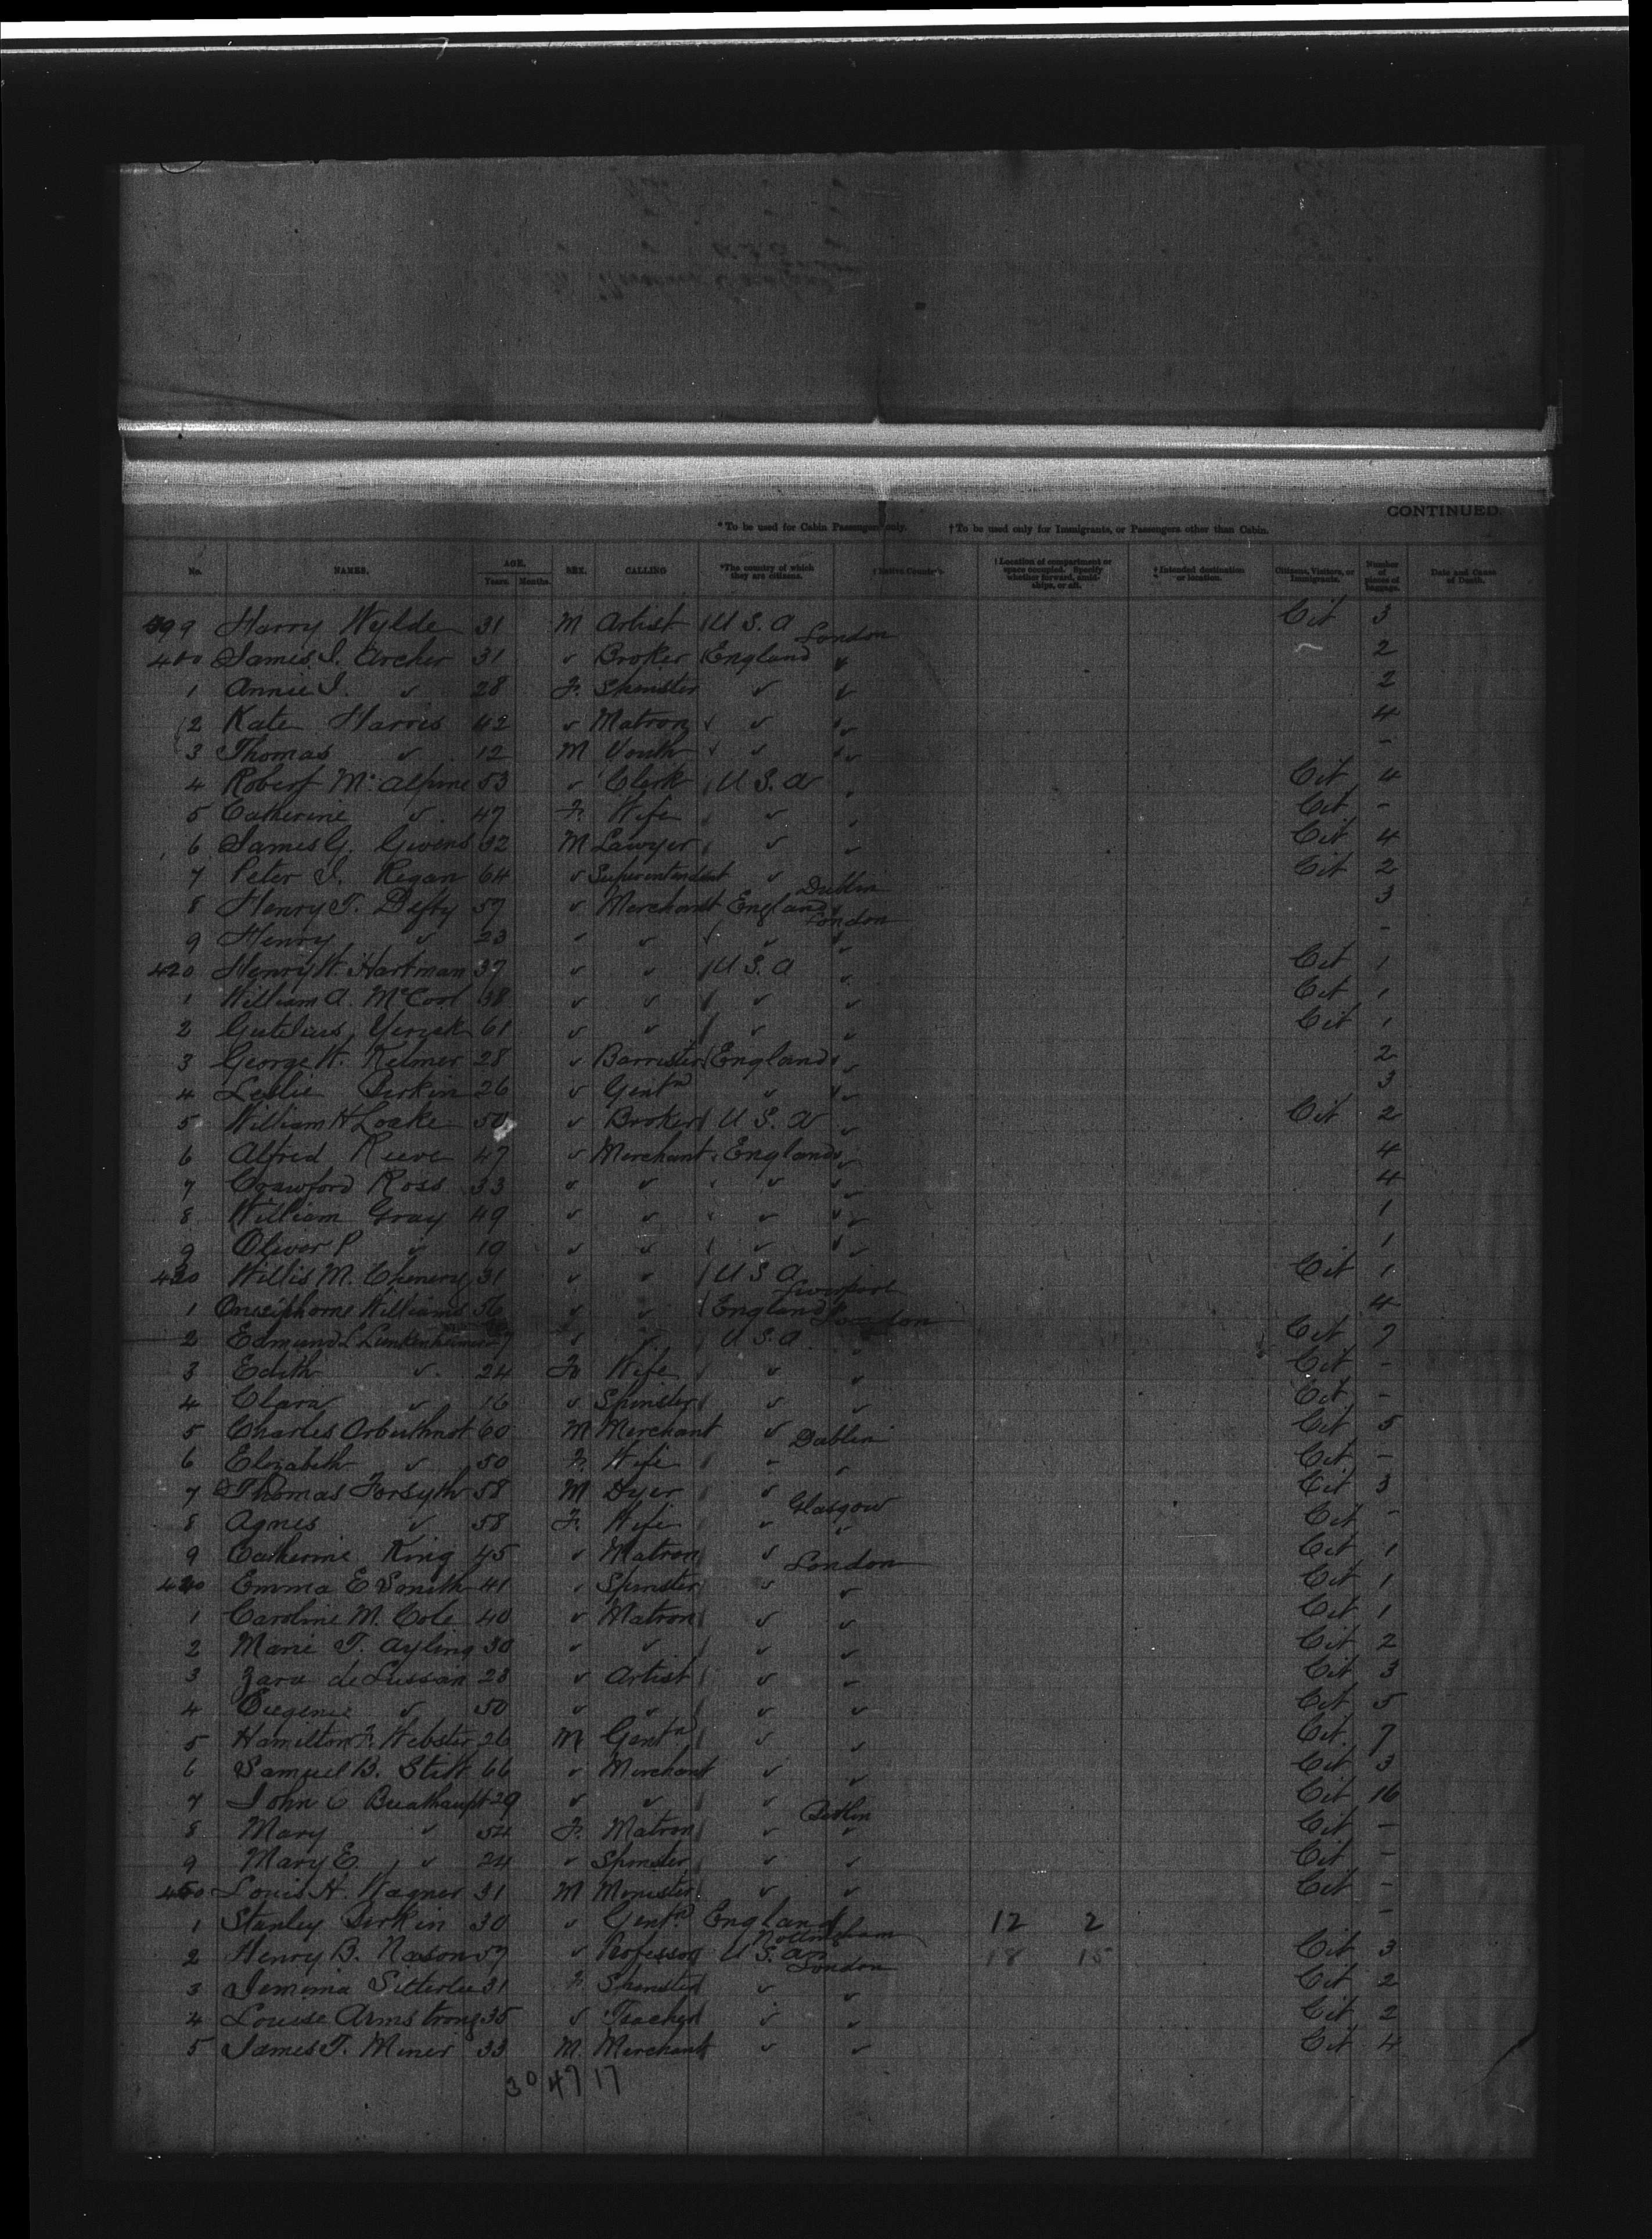 CONTINUED.
* To be used for Cabin Passengers only. † To be used only for Immigrants, or Passengers other than Cabin.
No. NAMES. AGE. Years. Months. SEX. CALLING *The country of which they are citizens. † Native Country. † Location of compartment or space occupied. Specify whether forward, amidships, or aft. † Intended destination or location. Citizens, Visitors, or Immigrants. Number of pieces of baggage. Date and Cause of Death.
399 Harry Wylde 31 M Artist U S. A London Cit 3
400 James J. Archer 31 " Broker England " 2
1 Annie J. " 28 F. Spinster " " 2
2 Kate Harris 42 " Matron " " 4
3 Thomas " 12 M Youth " " -
4 Robert Mc Alpine 53 " Clerk U S. A " Cit 4
5 Catherine " 47 F. Wife " " Cit -
6 James G. Givens 32 M Lawyer " " Cit 4
7 Peter J. Regan 64 " Superintendent " Dublin Cit 2
8 Henry T. Defty 57 " Merchant England London 3
9 Henry " 23 " " " " -
420 Henry W. Hartman 37 " " U S. A " Cit 1
1 William A. McCool 38 " " " " Cit 1
2 61 " " " " Cit 1
3 George W. Kelmer 28 " Barrister England " 2
4 Leslie Birkin 26 " Gentn " " 3
5 William H Loake 50 " Broker U S. A " Cit 2
6 Alfred Reeve 47 " Merchant England " 4
7 Crawford Ross 33 " " " " 4
8 William Gray 49 " " " " 1
9 Oliver P " 19 " " " " 1
430 Willis M. Chenery 31 " " U S A Liverpool Cit 1
1 Onesiphorne Williams 56 " " England London 4
2 Edmund L Lunkenheimer " " U. S. A. " Cit 7
3 Edith " 24 F. Wife " " Cit -
4 Clara " 16 " Spinster " " Cit -
5 Charles Arbuthnot 60 M Merchant " Dublin Cit 5
6 Elizabeth " 50 F. Wife " " Cit -
7 Thomas Forsyth 58 M Dyer " Glasgow Cit 3
8 Agnes " 58 F. Wife " " Cit -
9 Catherine King 45 " Matron " London Cit 1
440 Emma E Smith 41 " Spinster " " Cit 1
1 Caroline M. Cole 40 " Matron " " Cit 1
2 Marie T. Ayling 30 " " " " Cit 2
3 Zara de Lussan 28 " Artist " " Cit 3
4 Eugenie " 50 " " " " Cit 5
5 Hamilton F. Webster 26 M Gentn " " Cit. 7
6 Samuel B. Stitt 66 " Merchant " " Cit 3
7 John C Breathaupt 29 " " " Berlin Cit 16
8 Mary " 54 F. Matron " " Cit -
9 Mary E. " 24 " Spinster " " Cit -
450 Louis H. Wagner 31 M Minister " " Cit -
1 Stanley Birkin 30 " Gentn England Nottingham 12 2 -
2 Henry B. Nason 57 " Professor U S. A London 18 15 Cit 3
3 Jemima Sitterlee 31 F. Spinster " " Cit 2
4 Louise Armstrong 35 " Teacher " " Cit 2
5 James T. Miner 33 M. Merchant " " Cit 4
30 47 17